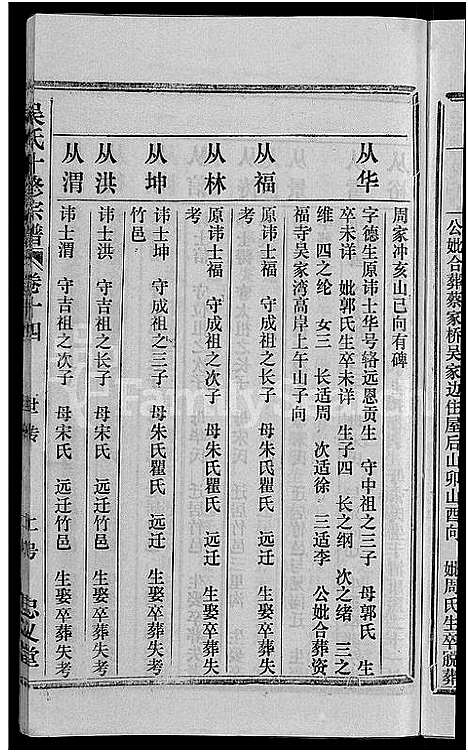 公妣合葬蔡家桥吴家边住屋后山卯山酉向 妣周氏生卒说葬
周家冲亥山巳向有碑
从华
字德生原讳士华号辂远恩贡生 守中祖之三子 母郭氏 生
卒未详 妣郭氏生卒未详 生子四 长之纲 次之绪 三之
维 四之纶 女三 长适周 次适徐 三适李 公妣合葬资
福寺吴家湾高岸上午山子向
从福
原讳士福 守成祖之长子 母朱氏瞿氏 远迁 生娶卒葬失
考
从林
原讳士福 守成祖之次子 母朱氏瞿氏 远迁 生娶卒葬失
考
从坤
讳士坤 守成祖之三子 母朱氏瞿氏 远迁 生娶卒葬失考
竹邑
从洪
讳士洪 守吉祖之长子 母宋氏 远迁竹邑 生娶卒葬失考
从渭
讳士渭 守吉祖之次子 母宋氏 远迁竹邑 生娶卒葬失考
吴氏十修宗谱 卷十四 世传 忠义堂